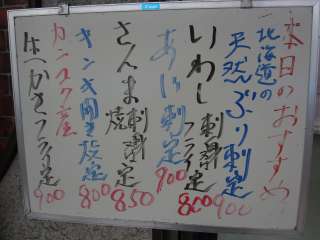 本日のおすすめ
北海道の
天然ぶり刺定
900
いわし刺身定
フライ定
800
あじ刺定
900
さんま刺身定
焼
850
キンキ開き定
800
カンヌケ産
はへかきフライ定
900